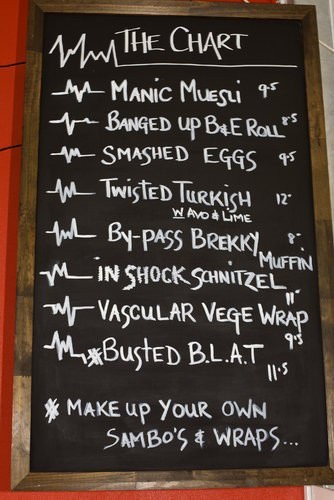 THE CHART
MANIC MUESLI 9.5
BANGED UP B&E ROLL 8.5
SMASHED EGGS 9.5
TWISTED TURKISH 12-
W AVO & LIME
BY-PASS BREKKY 8-
MUFFIN
IN SHOCK SCHNITZEL
11-
VASCULAR VEGE WRAP
9.5
*BUSTED B.L.A.T
11.5
* MAKE UP YOUR OWN
SAMBO'S & WRAPS...